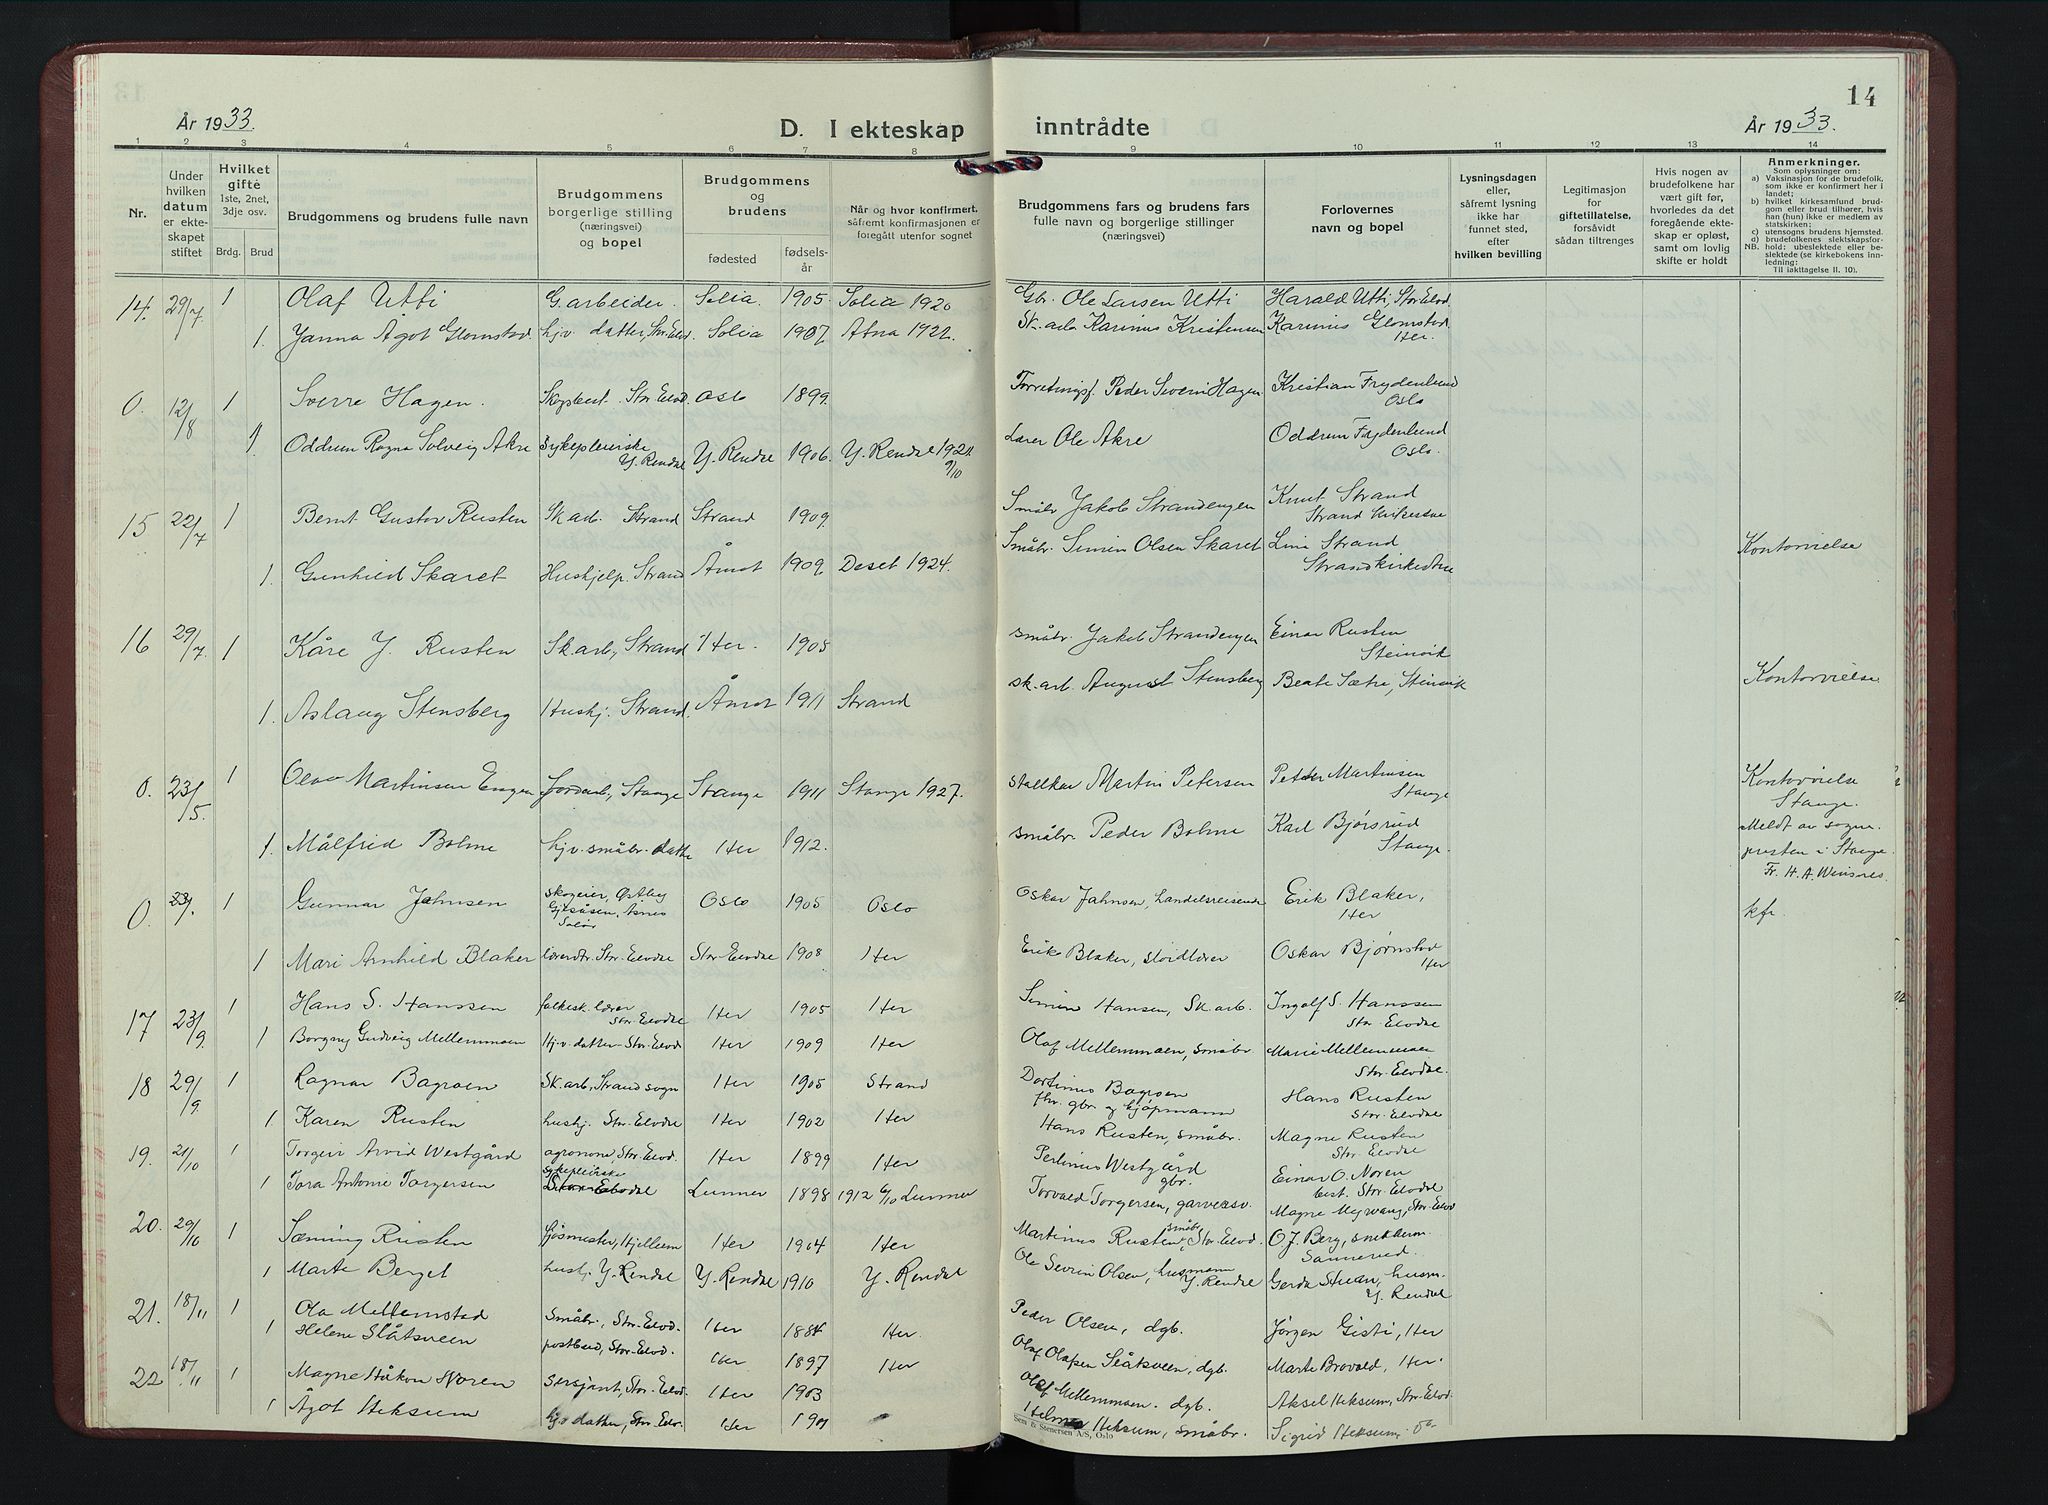 År 1933.
D. I ekteskap
inntrådte
14
År 1933.
1 2 3 4 5 6 7 8 9 10 11 12 13 14
Nr.
Under hvilken datum er ekteskapet stiftet
Hvilket gifte 1ste, 2net, 3dje osv.
Brdg. Brud
Brudgommens og brudens fulle navn
Brudgommens borgerlige stilling (næringsvei) og bopel
Brudgommens og brudens
fødested
fødselsår
Når og hvor konfirmert, såfremt konfirmasjonen er foregått utenfor sognet
Brudgommens fars og brudens fars fulle navn og borgerlige stillinger (næringsvei)
Forlovernes navn og bopel
Lysningsdagen eller, såfremt lysning ikke har funnet sted, efter hvilken bevilling
Legitimasjon for giftetillatelse, forsåvidt sådan tiltrenges
Hvis nogen av brudefolkene har vært gift før, hvorledes da det foregående ekteskap er opløst, samt om lovlig skifte er holdt
Anmerkninger.
Som oplysninger om:
a) Vaksinasjon for de brudefolk, som ikke er konfirmert her i landet;
b) hvilket kirkesamfund brudgom eller brud tilhører, hvis han (hun) ikke er medlem av statskirken;
c) utensogns brudens hjemsted.
d) brudefolkenes slektskapsforhold: ubeslektede eller beslektede (se kirkebokens innledning:
NB.
Til iakttagelse II. 10).
14. 29/7. 1 Olaf Utti G.arbeider. Solia. 1905. Solia 1920 Gbr. Ole Larsen Utti Harald Utti, Stor.Elvd.
1. Janna Ågot Glomstad. hjv. datter, Stor.Elvd. Solia 1907. Atna 1922. Sk.arb. Karinus Kristensen Karinus Glomstad. Her.
0. 12/8 1 Sverre Hagen. Stor.Elvd. Oslo 1899. Peder Severin Hagen Kristian Frydenlund Oslo
1. Oddrun Ragna Solveig Akre Sykepleierske Y. Rendal Y. Rendal 1906. Y. Rendal 1921. 9/10 Lærer Ole Akre Oddrun Frydenlund Oslo.
15 22/7 1 Bernt Gustav Rusten Sk.arb. Strand Strand 1909. Småbr. Jakob Strandengen Knut Strand
1. Gunhild Skaret Huskjelp. Strand Åmot 1909. Deset 1924. Småbr. Simen Olsen Skaret Lina Strand Kontorvielse
16 29/7. 1 Kåre J. Rusten Sk.arb., Strand Her. 1905 småbr. Jakob Strandengen Einar Rusten Steinvik
1. Aslaug Stensberg Hushj. Strand. Åmot 1911 Strand sk.arb. August Stensberg Beate Sætre, Steinvik Kontorvielse
0. 23/5. 1 Olav Martinsen Engen Jordarb., Stange Stange 1911 Stange 1927. Stallkar Martin Petersen Petter Martinsen Stange Kontorvielse Stange.
1. Målfrid Bolme hjv. småbr. datter Her 1912. småbr. Peder Bolme Karl Bjørsrud Stange. Meldt av sogne-
presten i Stange.
0. 23/9. 1 Gunnar Jahnsen skogeier, Østby Åsnes Solør Oslo 1905 Oslo Oskar Jahnsen, handelsreisende Erik Blaker, Her kfr.
1 Mari Arnhild Blaker lærerdtr. Stor-Elvdal Stor-Elvdal 1908 Her Erik Blaker, sløidlærer Oskar Bjørnstad Her
17 23/9. 1 Hans S. Hanssen folkesk.lærer Stor-Elvdal Her 1905 Her Simen Hansen, Sk.arb. Ingolf S. Hanssen Stor-Elvdal
1 Borgny Gudveig Mellemmoen Hjv. datter Stor-Elvd. Her 1909 Her Olaf Mellemmoen, småbr. Marie Mellemmoen Stor-Elvdal.
18 29/9. 1 Ragnar Bagroen Sk.arb., Strand sogn Her 1905 Strand Dortinus Bagroen fhv. gbr. og kjøpmann Hans Rusten Stor-Elvdal
1 Karen Rusten hushj. Stor-Elvdal Her 1902 Her Hans Rusten, småbr. Magne Rusten Stor-Elvdal
19. 21/10 1 Torgeir Arvid Westgård agronom, Stor-Elvd. Her 1899 Her Pertinius Westgård gbr. Einar O. Noren best. Stor-Elvdal
1 Tora Antonie Torgersen sykepleierske Stor-Elvdal Lunner 1898 1912 6/10 Lunner Torvald Torgersen, garversv. Magne Myrvang, Stor-Elvd
20. 29/10 1 Sæming Rusten fjøsmester, Hjellum Her 1904 Her Martinus Rusten, småbr. Stor-Elvd. O.J. Berg, snekkerm. Sannerud.
1 Marte Berget hushj. Y. Rendal Y. Rendal 1910 Y. Rendal Ole Severin Olsen, husmann Y. Rendal Gerda Stuan, husm. Y. Rendal
21. 18/11 1 Ola Mellemstad Småbr., Stor-Elvd. Her 1884 Her. Peder Olsen, dgb. Jørgen Gisti, Her
1 Helene Slåtsveen postbud, Stor-Elvd. Her 1897 Her Olaf Olafsen Slåtsveen, dgb. Marte Brovold, Her.
22 18/11 1 Magne Håkon Noren sersjant, Stor-Elvd. Her 1903 Olaf Mellemmoen. dgb. Aksel Heksum, Stor-Elvd.
1 Ågot Heksum hjv datter, Stor-Elv. Her Heksum, småbr. Sigrid Heksum, do.
Sem & Stenersen A/S, Oslo